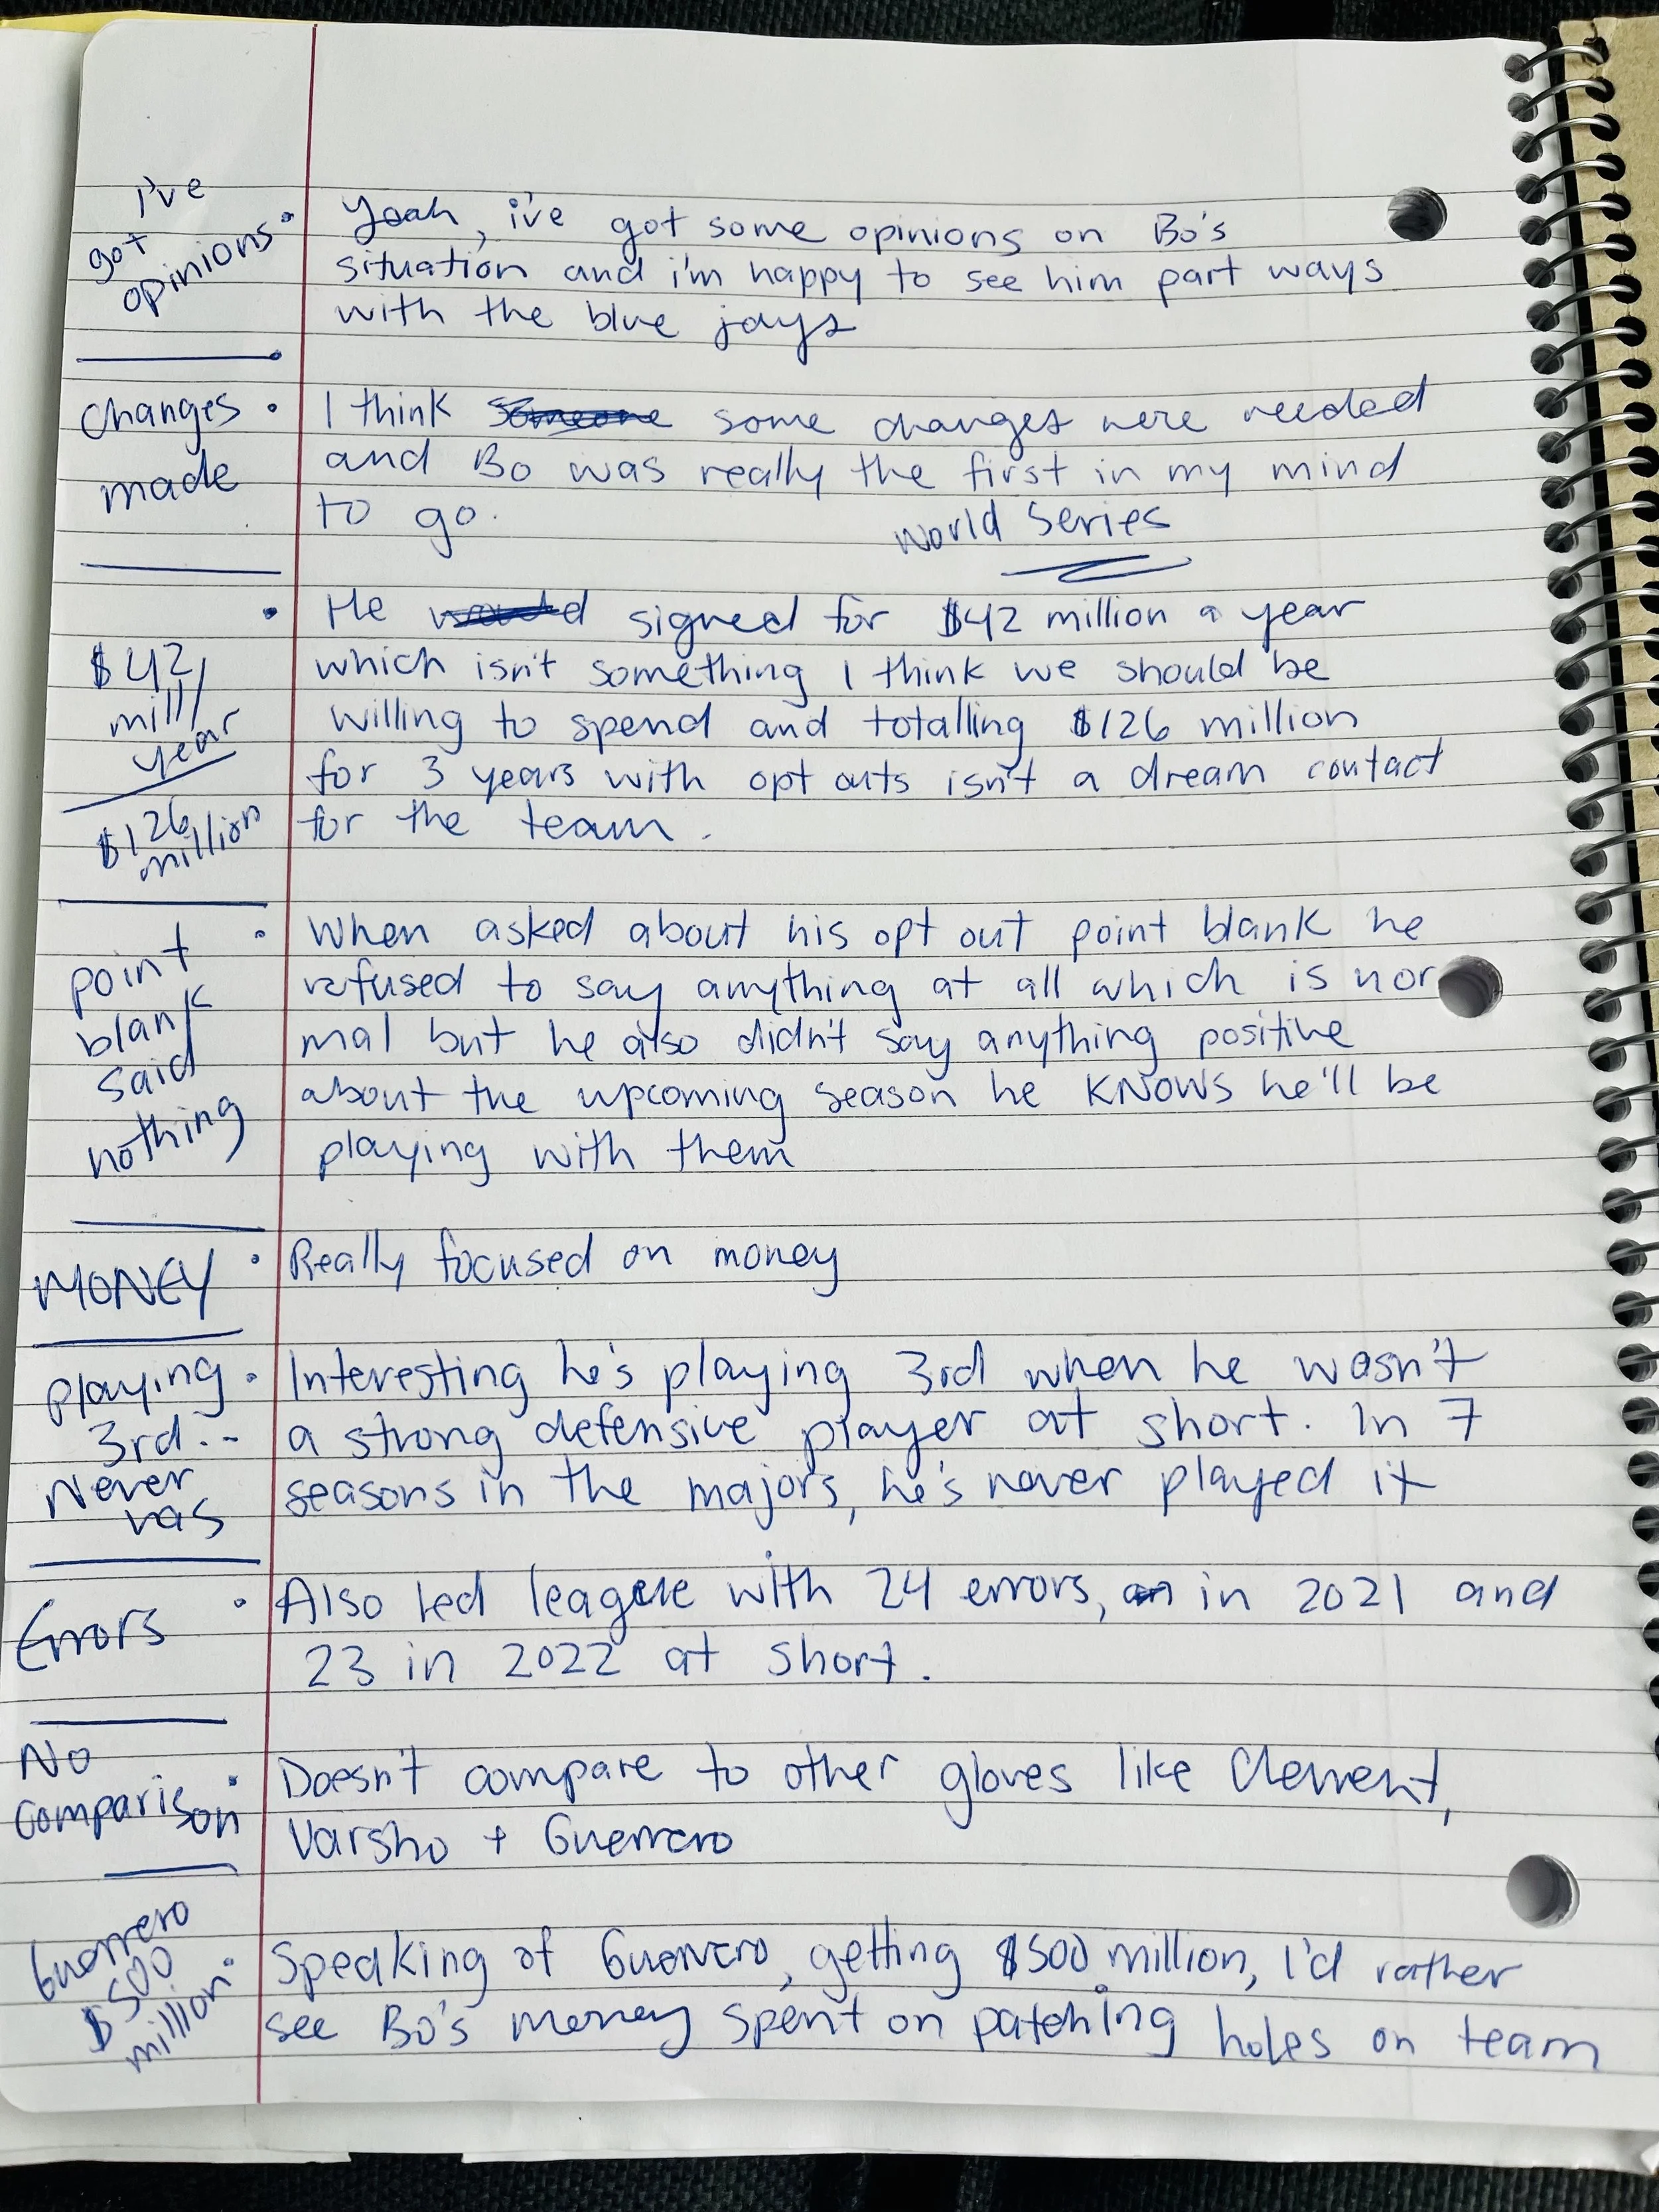 i've
got
opinions
• Yeah, i've got some opinions on Bo's
situation and i'm happy to see him part ways
with the blue jays
changes
made
• I think some changes were needed
and Bo was really the first in my mind
to go.
World Series
$42
mill/
year
$126
million
• He signed for $42 million a year
which isn't something I think we should be
willing to spend and totalling $126 million
for 3 years with opt outs isn't a dream contact
for the team.
point
blank
said
nothing
• When asked about his opt out point blank he
refused to say anything at all which is nor
mal but he also didn't say anything positive
about the upcoming season he KNOWS he'll be
playing with them
MONEY
• Really focused on money
playing
3rd..
Never
has
• Interesting he's playing 3rd when he wasn't
a strong defensive player at short. In 7
seasons in the majors, he's never played it
Errors
• Also led league with 24 errors, in 2021 and
23 in 2022 at short.
No
comparison
• Doesn't compare to other gloves like Clement,
Varsho + Guerrero
Guerrero
$500
million
• Speaking of Guerrero, getting $500 million, I'd rather
see Bo's money spent on patching holes on team